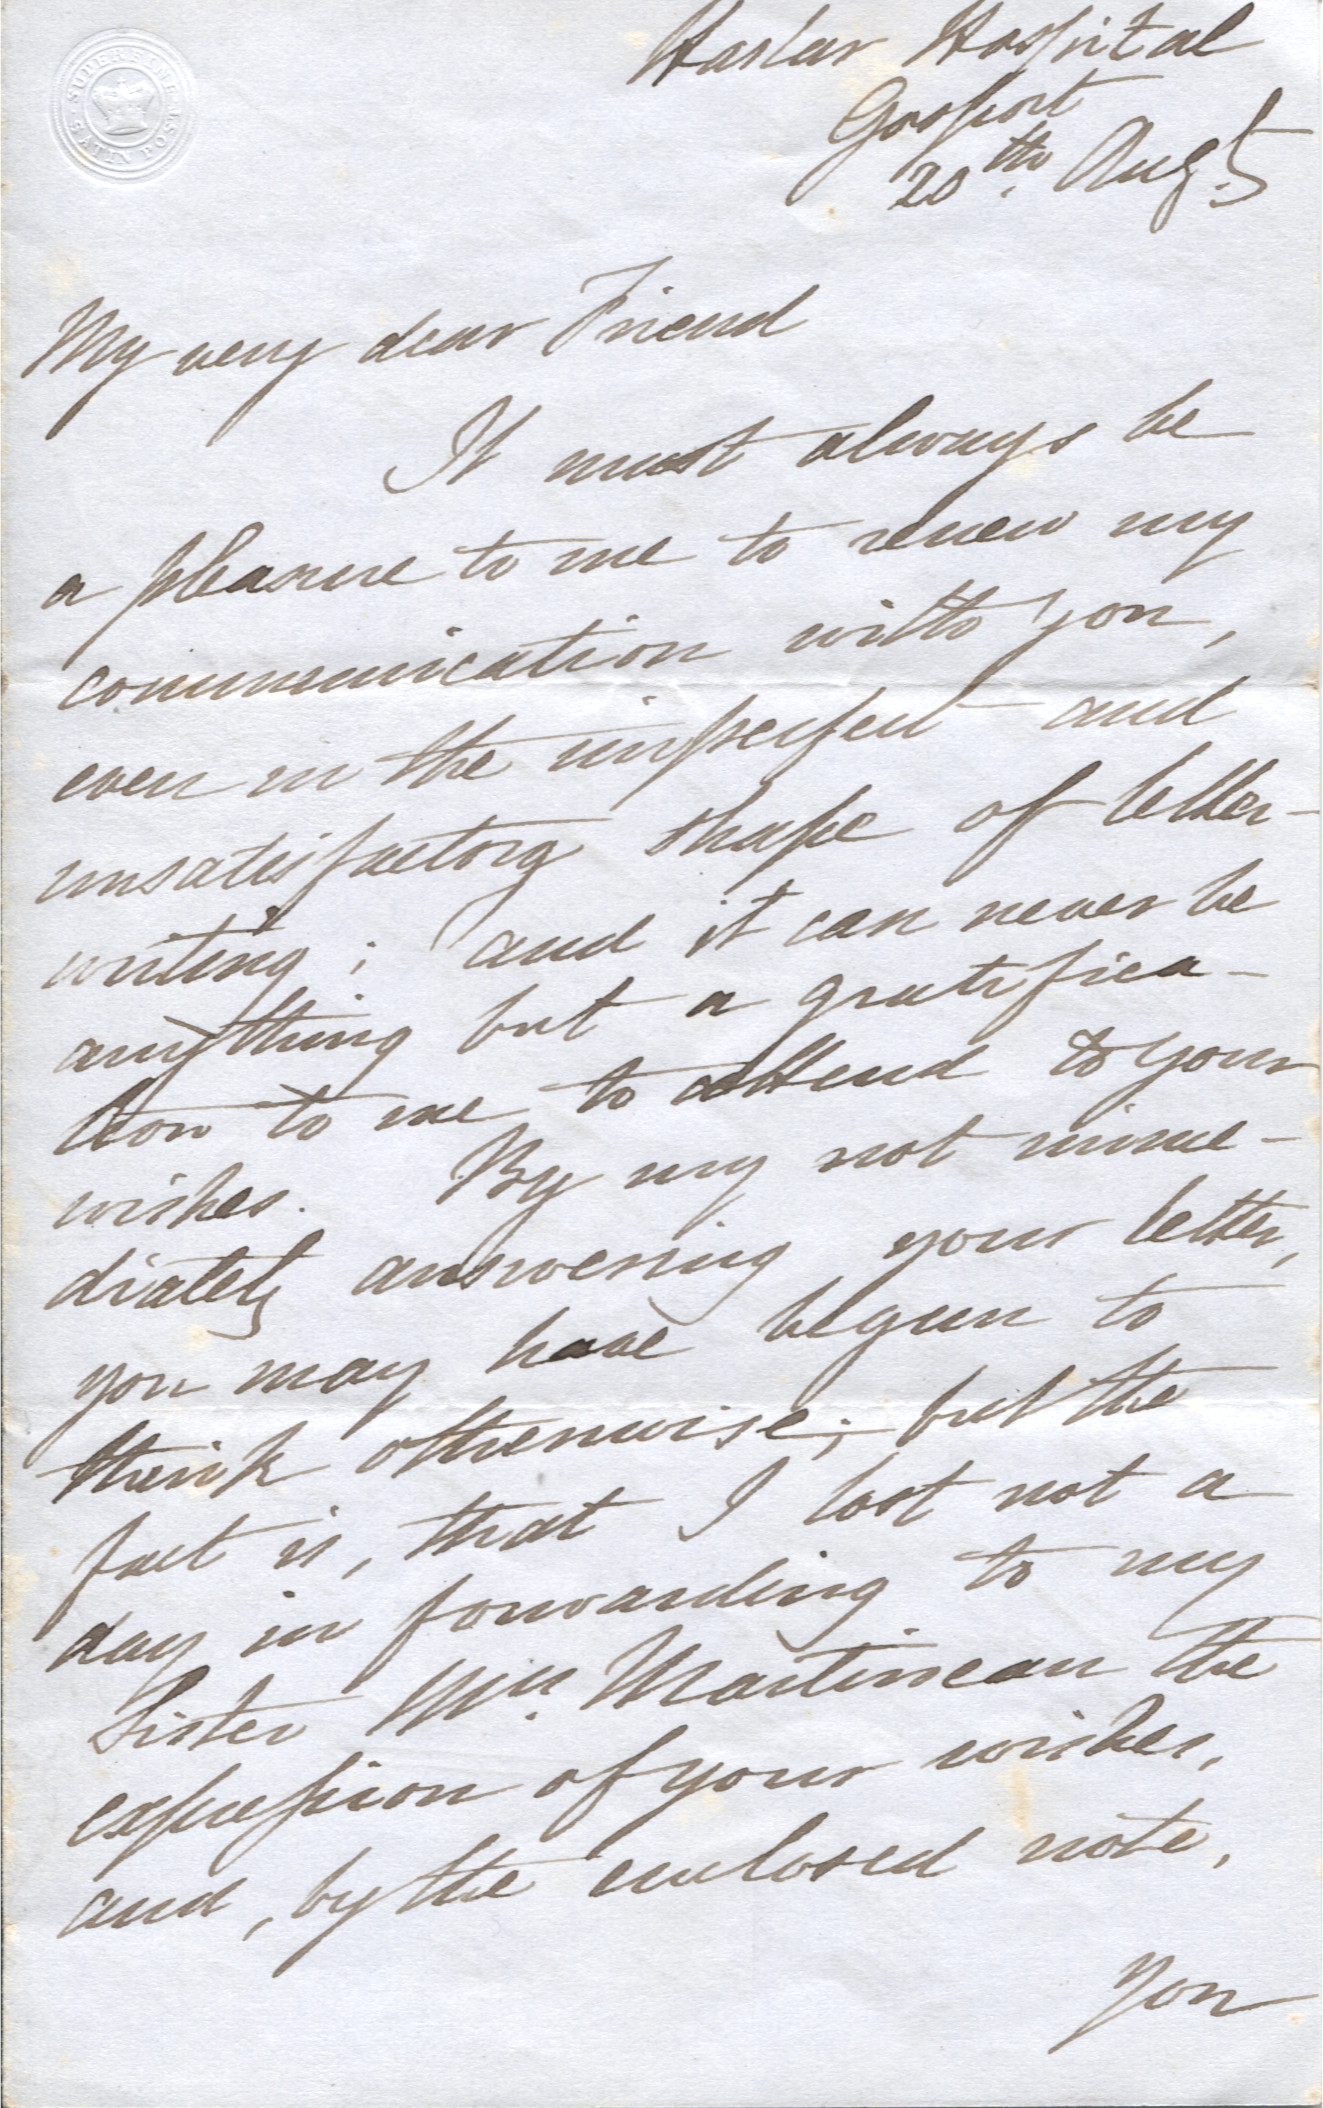 SUPERFINE SATIN POST
Haslar Hospital
Gosport
20th. Augt.
My very dear Friend
It must always be
a pleasure to me to renew my
communication with you,
even in the imperfect and
unsatisfactory shape of letter-
writing; and it can never be
anything but a gratifica-
tion to me to attend to your
wishes. By my not imme-
diately answering your letter,
you may have begun to
think otherwise; but the
fact is, that I lost not a
day in forwarding to my
Sister Mrs. Martineau the
expression of your wishes,
and, by the enclosed note,
You